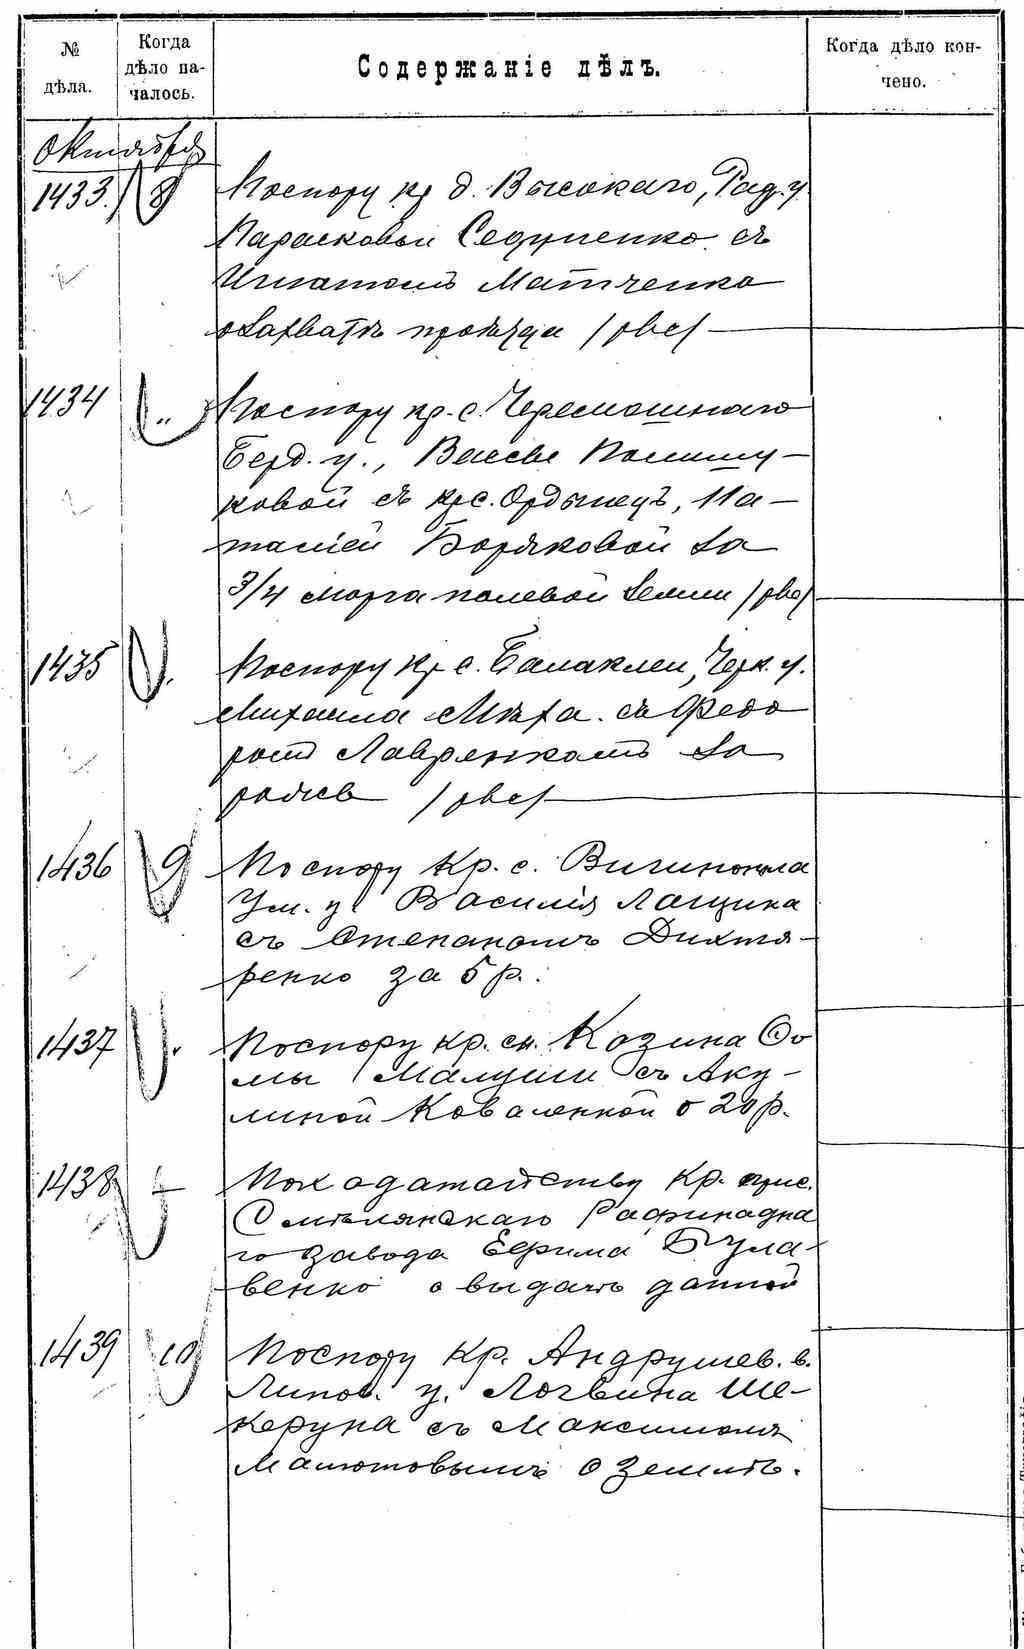 №
дѣла.
Когда
дѣло на-
чалось.
Содержаніе дѣлъ.
Когда дѣло кон-
чено.
Октября
1433. 8 По спору кр д. Высокаго, Рад. у
Парасковьи Седченко съ
Игнатомъ Матченко
о захватѣ проѣзда
1434 „ По спору кр. с. Черемошнаго
Берд. у., Вассы Полищу-
ковой съ кр с. Ордынецъ, На-
таліей Боряковой за
3/4 морга полевой земли
1435 По спору кр с. Балаклеи, Черк. у.
Михаила Мѣха съ Федо
ромъ Лавренкомъ за
1436 9 По спору кр. с.
Ум. у Василія Лащина
съ Степаномъ Дихтя-
ренко за 5 р.
1437 По спору кр. сн. Козина Ѳо
мы съ Аку-
линой Коваленкой о 20 р.
1438 По ходатайству кр. прис.
Смѣлянскаго Рафинадна
го завода Ефима Була-
венко о выдачѣ данной
1439 10 По спору кр. Андрушев. в.
Липов. у. Логвина Ше-
керуна съ Максимомъ
о землѣ.